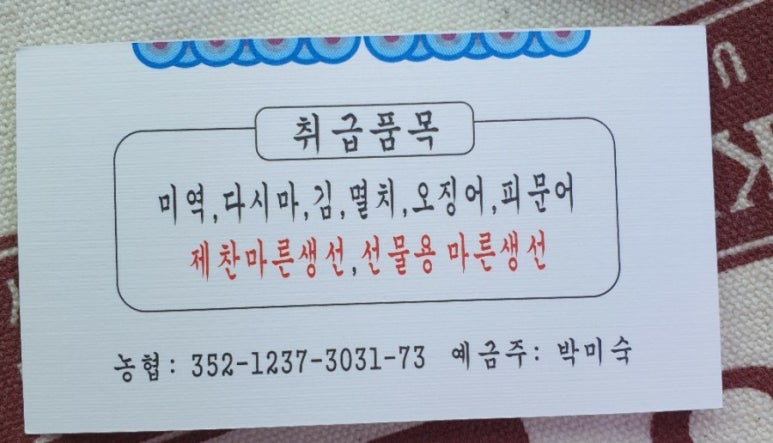 취급품목
미역,다시마,김,멸치,오징어,피문어
제찬마른생선,선물용 마른생선
농협: 352-1237-3031-73 예금주: 박미숙